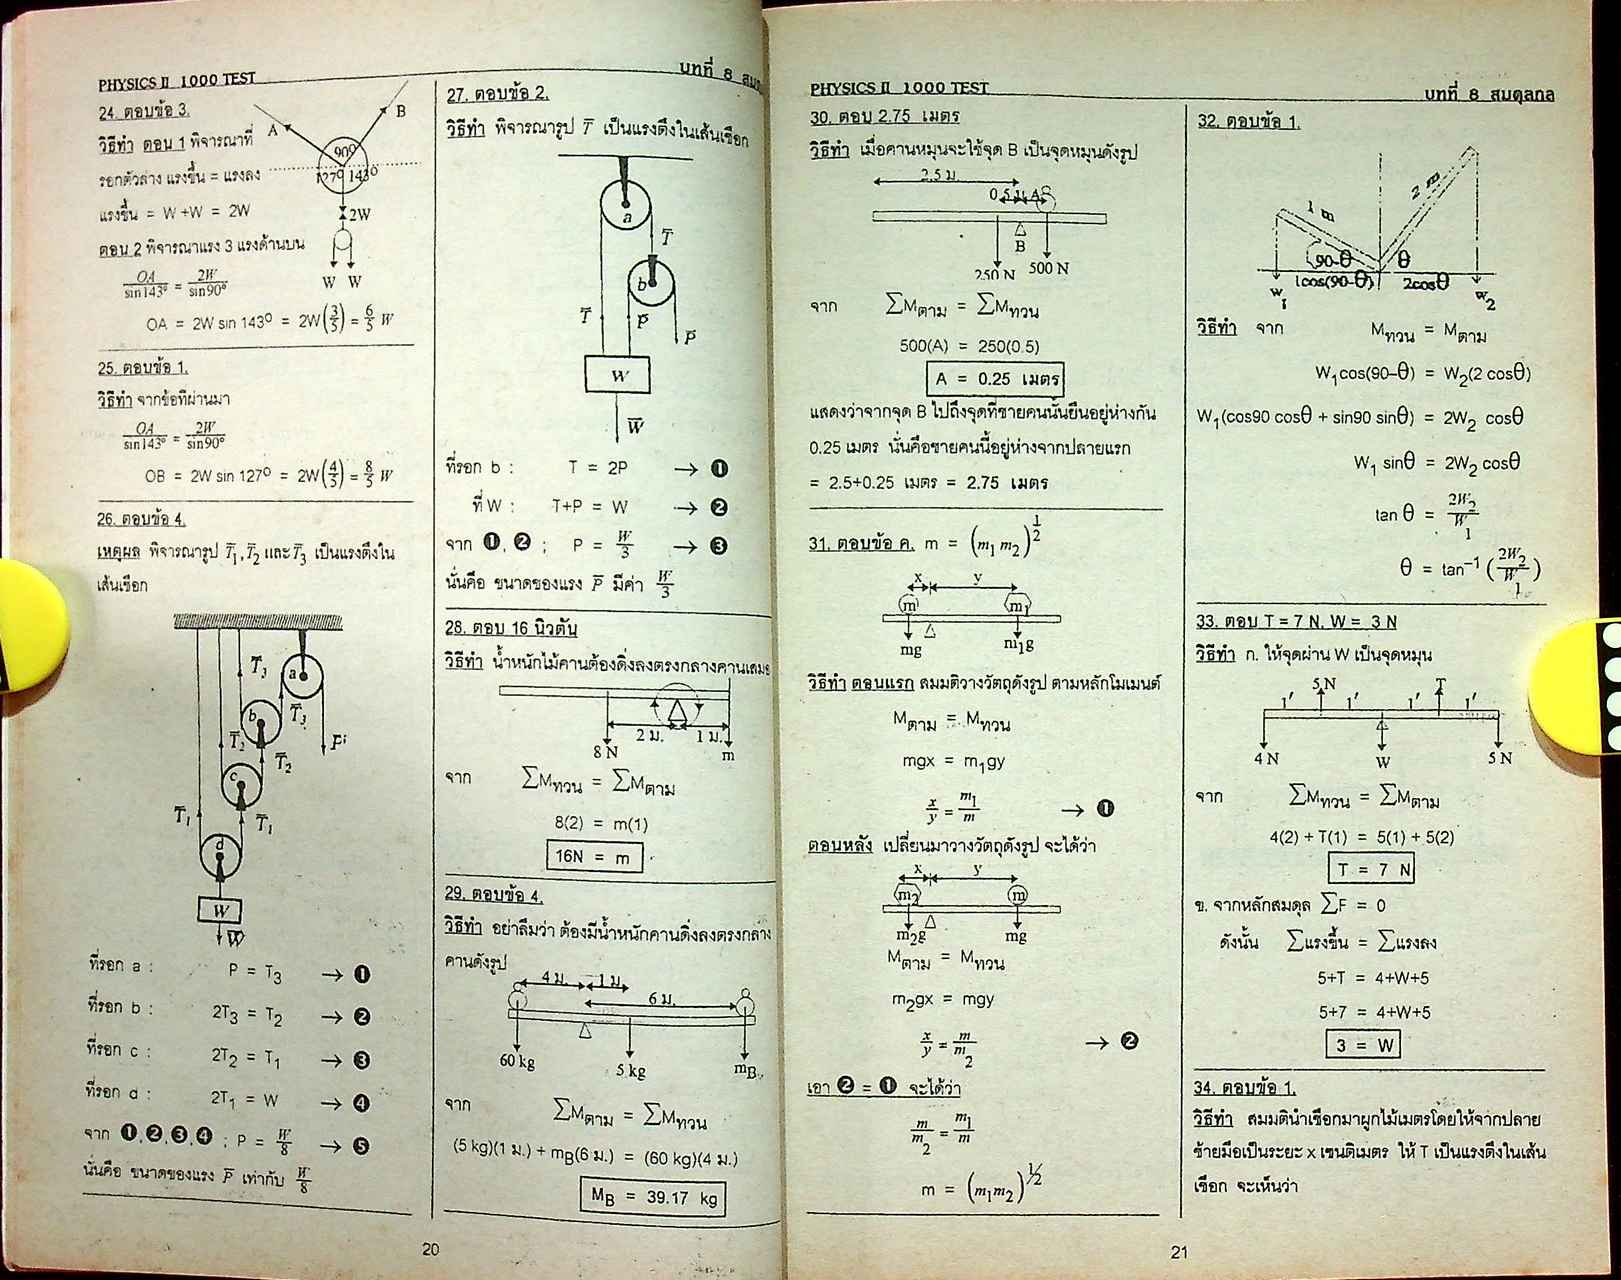 PHYSICS II 1000 TEST
บทที่ 8 สมดุ
24. ตอบข้อ 3.
A
B
90º
127º 143º
2W
W W
วิธีทำ ตอน 1 พิจารณาที่
รอกตัวล่าง แรงขึ้น = แรงลง
แรงขึ้น = W +W = 2W
ตอน 2 พิจารณาแรง 3 แรงด้านบน
OA/sin143º = 2W/sin90º
OA = 2W sin 143º = 2W(3/5) = 6/5 W
25. ตอบข้อ 1.
วิธีทำ จากข้อที่ผ่านมา
OA/sin143º = 2W/sin90º
OB = 2W sin 127º = 2W(4/5) = 8/5 W
26. ตอบข้อ 4.
เหตุผล พิจารณารูป T̄₁, T̄₂ และ T̄₃ เป็นแรงตึงใน
เส้นเชือก
T̄₃
a
b
T̄₃
T̄₂
T̄₂
c
T̄₁
T̄₁
d
W
W̄
ที่รอก a : P = T₃ → ❶
ที่รอก b : 2T₃ = T₂ → ❷
ที่รอก c : 2T₂ = T₁ → ❸
ที่รอก d : 2T₁ = W → ❹
จาก ❶,❷,❸,❹ ; P = W/8 → ❺
นั่นคือ ขนาดของแรง P̄ เท่ากับ W/8
27. ตอบข้อ 2.
วิธีทำ พิจารณารูป T̄ เป็นแรงตึงในเส้นเชือก
a
T̄
b
T̄
P̄
P̄
W
W̄
ที่รอก b : T = 2P → ❶
ที่ W : T+P = W → ❷
จาก ❶, ❷ ; P = W/3 → ❸
นั่นคือ ขนาดของแรง P̄ มีค่า W/3
28. ตอบ 16 นิวตัน
วิธีทำ น้ำหนักไม้คานต้องดิ่งลงตรงกลางคานเสมอ
2 ม. 1 ม.
8 N m
จาก ∑Mทวน = ∑Mตาม
8(2) = m(1)
16N = m
29. ตอบข้อ 4.
วิธีทำ อย่าลืมว่า ต้องมีน้ำหนักคานดิ่งลงตรงกลาง
คานดังรูป
4 ม. 1 ม.
6 ม.
60 kg 5 kg mB
จาก ∑Mตาม = ∑Mทวน
(5 kg)(1 ม.) + mB(6 ม.) = (60 kg)(4 ม.)
MB = 39.17 kg
20
PHYSICS II 1000 TEST
บทที่ 8 สมดุลกล
30. ตอบ 2.75 เมตร
วิธีทำ เมื่อคานหมุนจะใช้จุด B เป็นจุดหมุนดังรูป
2.5 ม.
0.5 ม. A
B
250 N 500 N
จาก ∑Mตาม = ∑Mทวน
500(A) = 250(0.5)
A = 0.25 เมตร
แสดงว่าจากจุด B ไปถึงจุดที่ชายคนนั้นยืนอยู่ห่างกัน
0.25 เมตร นั่นคือชายคนนี้อยู่ห่างจากปลายแรก
= 2.5+0.25 เมตร = 2.75 เมตร
31. ตอบข้อ ค. m = (m₁ m₂)^1/2
x y
m m₁
mg m₁g
วิธีทำ ตอนแรก สมมติวางวัตถุดังรูป ตามหลักโมเมนต์
Mตาม = Mทวน
mgx = m₁gy
x/y = m₁/m → ❶
ตอนหลัง เปลี่ยนมาวางวัตถุดังรูป จะได้ว่า
x y
m₂ m
m₂g mg
Mตาม = Mทวน
m₂gx = mgy
x/y = m/m₂ → ❷
เอา ❷ = ❶ จะได้ว่า
m/m₂ = m₁/m
m = (m₁m₂)^1/2
32. ตอบข้อ 1.
1 m 2 m
90-θ θ
1cos(90-θ) 2cosθ
w₁ w₂
วิธีทำ จาก Mทวน = Mตาม
W₁cos(90-θ) = W₂(2 cosθ)
W₁(cos90 cosθ + sin90 sinθ) = 2W₂ cosθ
W₁ sinθ = 2W₂ cosθ
tan θ = 2W₂/W₁
θ = tan⁻¹ (2W₂/W₁)
33. ตอบ T = 7 N, W = 3 N
วิธีทำ ก. ให้จุดผ่าน W เป็นจุดหมุน
5N T
1' 1' 1' 1'
4 N W 5 N
จาก ∑Mทวน = ∑Mตาม
4(2) + T(1) = 5(1) + 5(2)
T = 7 N
ข. จากหลักสมดุล ∑F = 0
ดังนั้น ∑แรงขึ้น = ∑แรงลง
5+T = 4+W+5
5+7 = 4+W+5
3 = W
34. ตอบข้อ 1.
วิธีทำ สมมตินำเชือกมาผูกไม้เมตรโดยให้จากปลาย
ซ้ายมือเป็นระยะ x เซนติเมตร ให้ T เป็นแรงตึงในเส้น
เชือก จะเห็นว่า
21